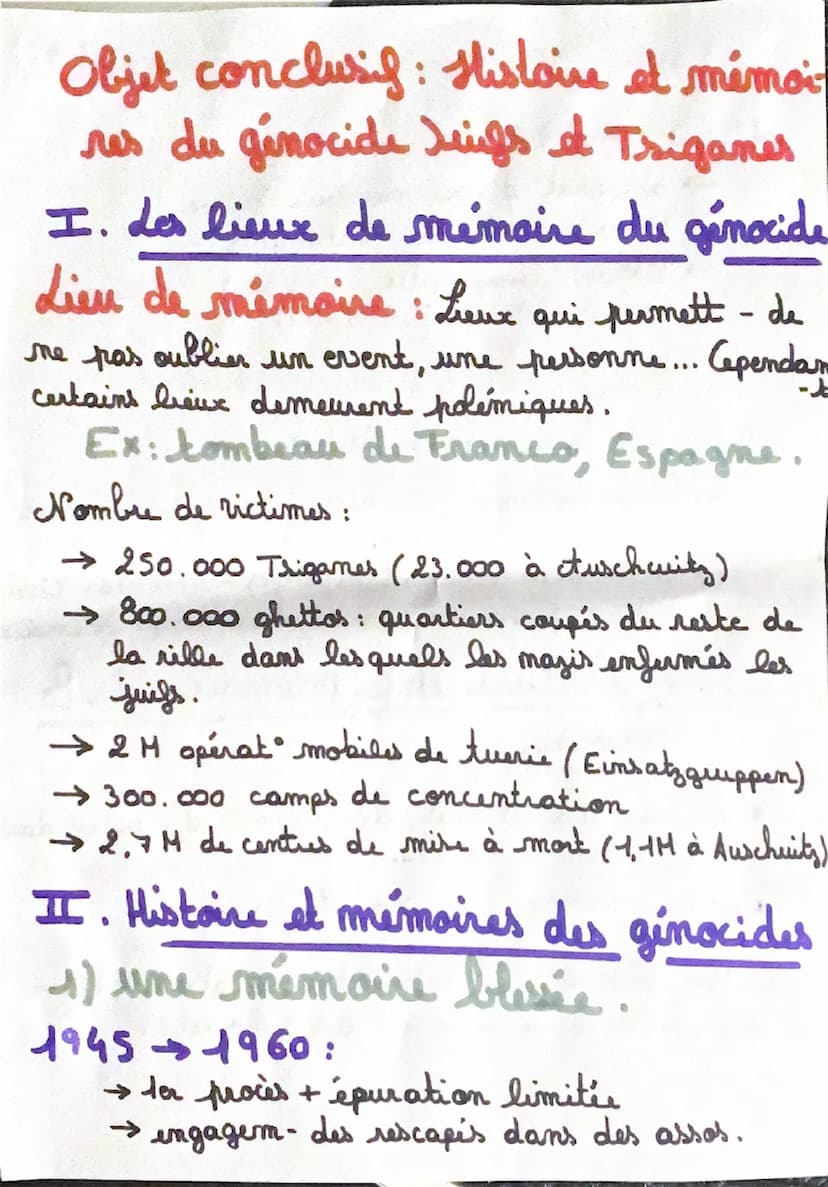 Objet conclusif : Histoire et mémoi-
res du génocide Juifs et Tsiganes
I. Les lieux de mémoire du génocide
Lieu de mémoire : Lieux qui permett - de
ne pas oublier un event, une personne... Cependan
-t
certains lieux demeurent polémiques.
Ex : tombeau de Franco, Espagne.
Nombre de victimes :
→ 250.000 Tsiganes (23.000 à Auschwitz)
→ 800.000 ghettos : quartiers coupés du reste de
la ville dans lesquels les nazis enfermés les
juifs.
→ 2 M opérat° mobiles de tuerie (Einsatzgruppen)
→ 300.000 camps de concentration
→ 2,7 M de centres de mise à mort (1,1M à Auschwitz)
II. Histoire et mémoires des génocides
1) une mémoire blessée.
1945 → 1960 :
→ 1er procès + épuration limitée
→ engagem- des rescapés dans des assos.